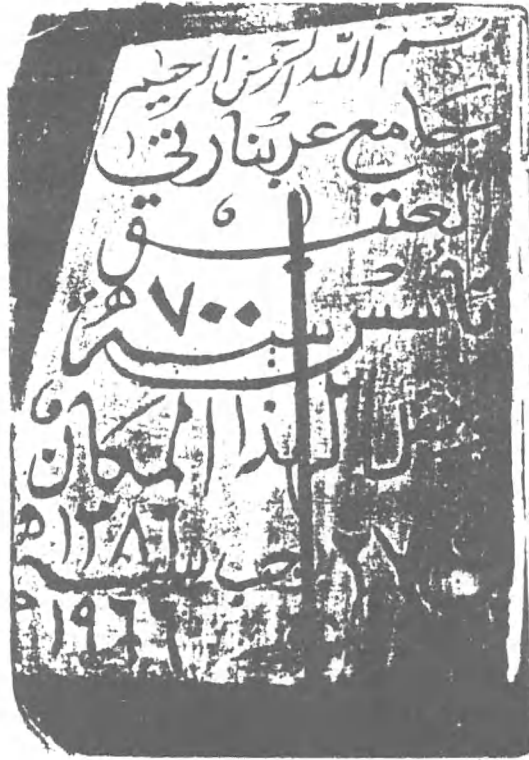 بسم الله الرحمن الرحيم
جامع عربنارتي
العتيق
تأسس سنة ٧٠٠ هـ
لهذا المكان
٢٧ رجب سنة ١٢٨٦ هـ
١٩٦٦ م